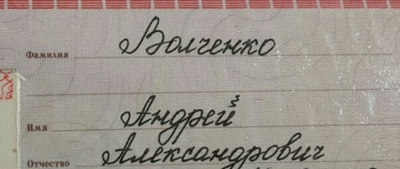 Фамилия Волченко
Имя Андрей
Отчество Александрович